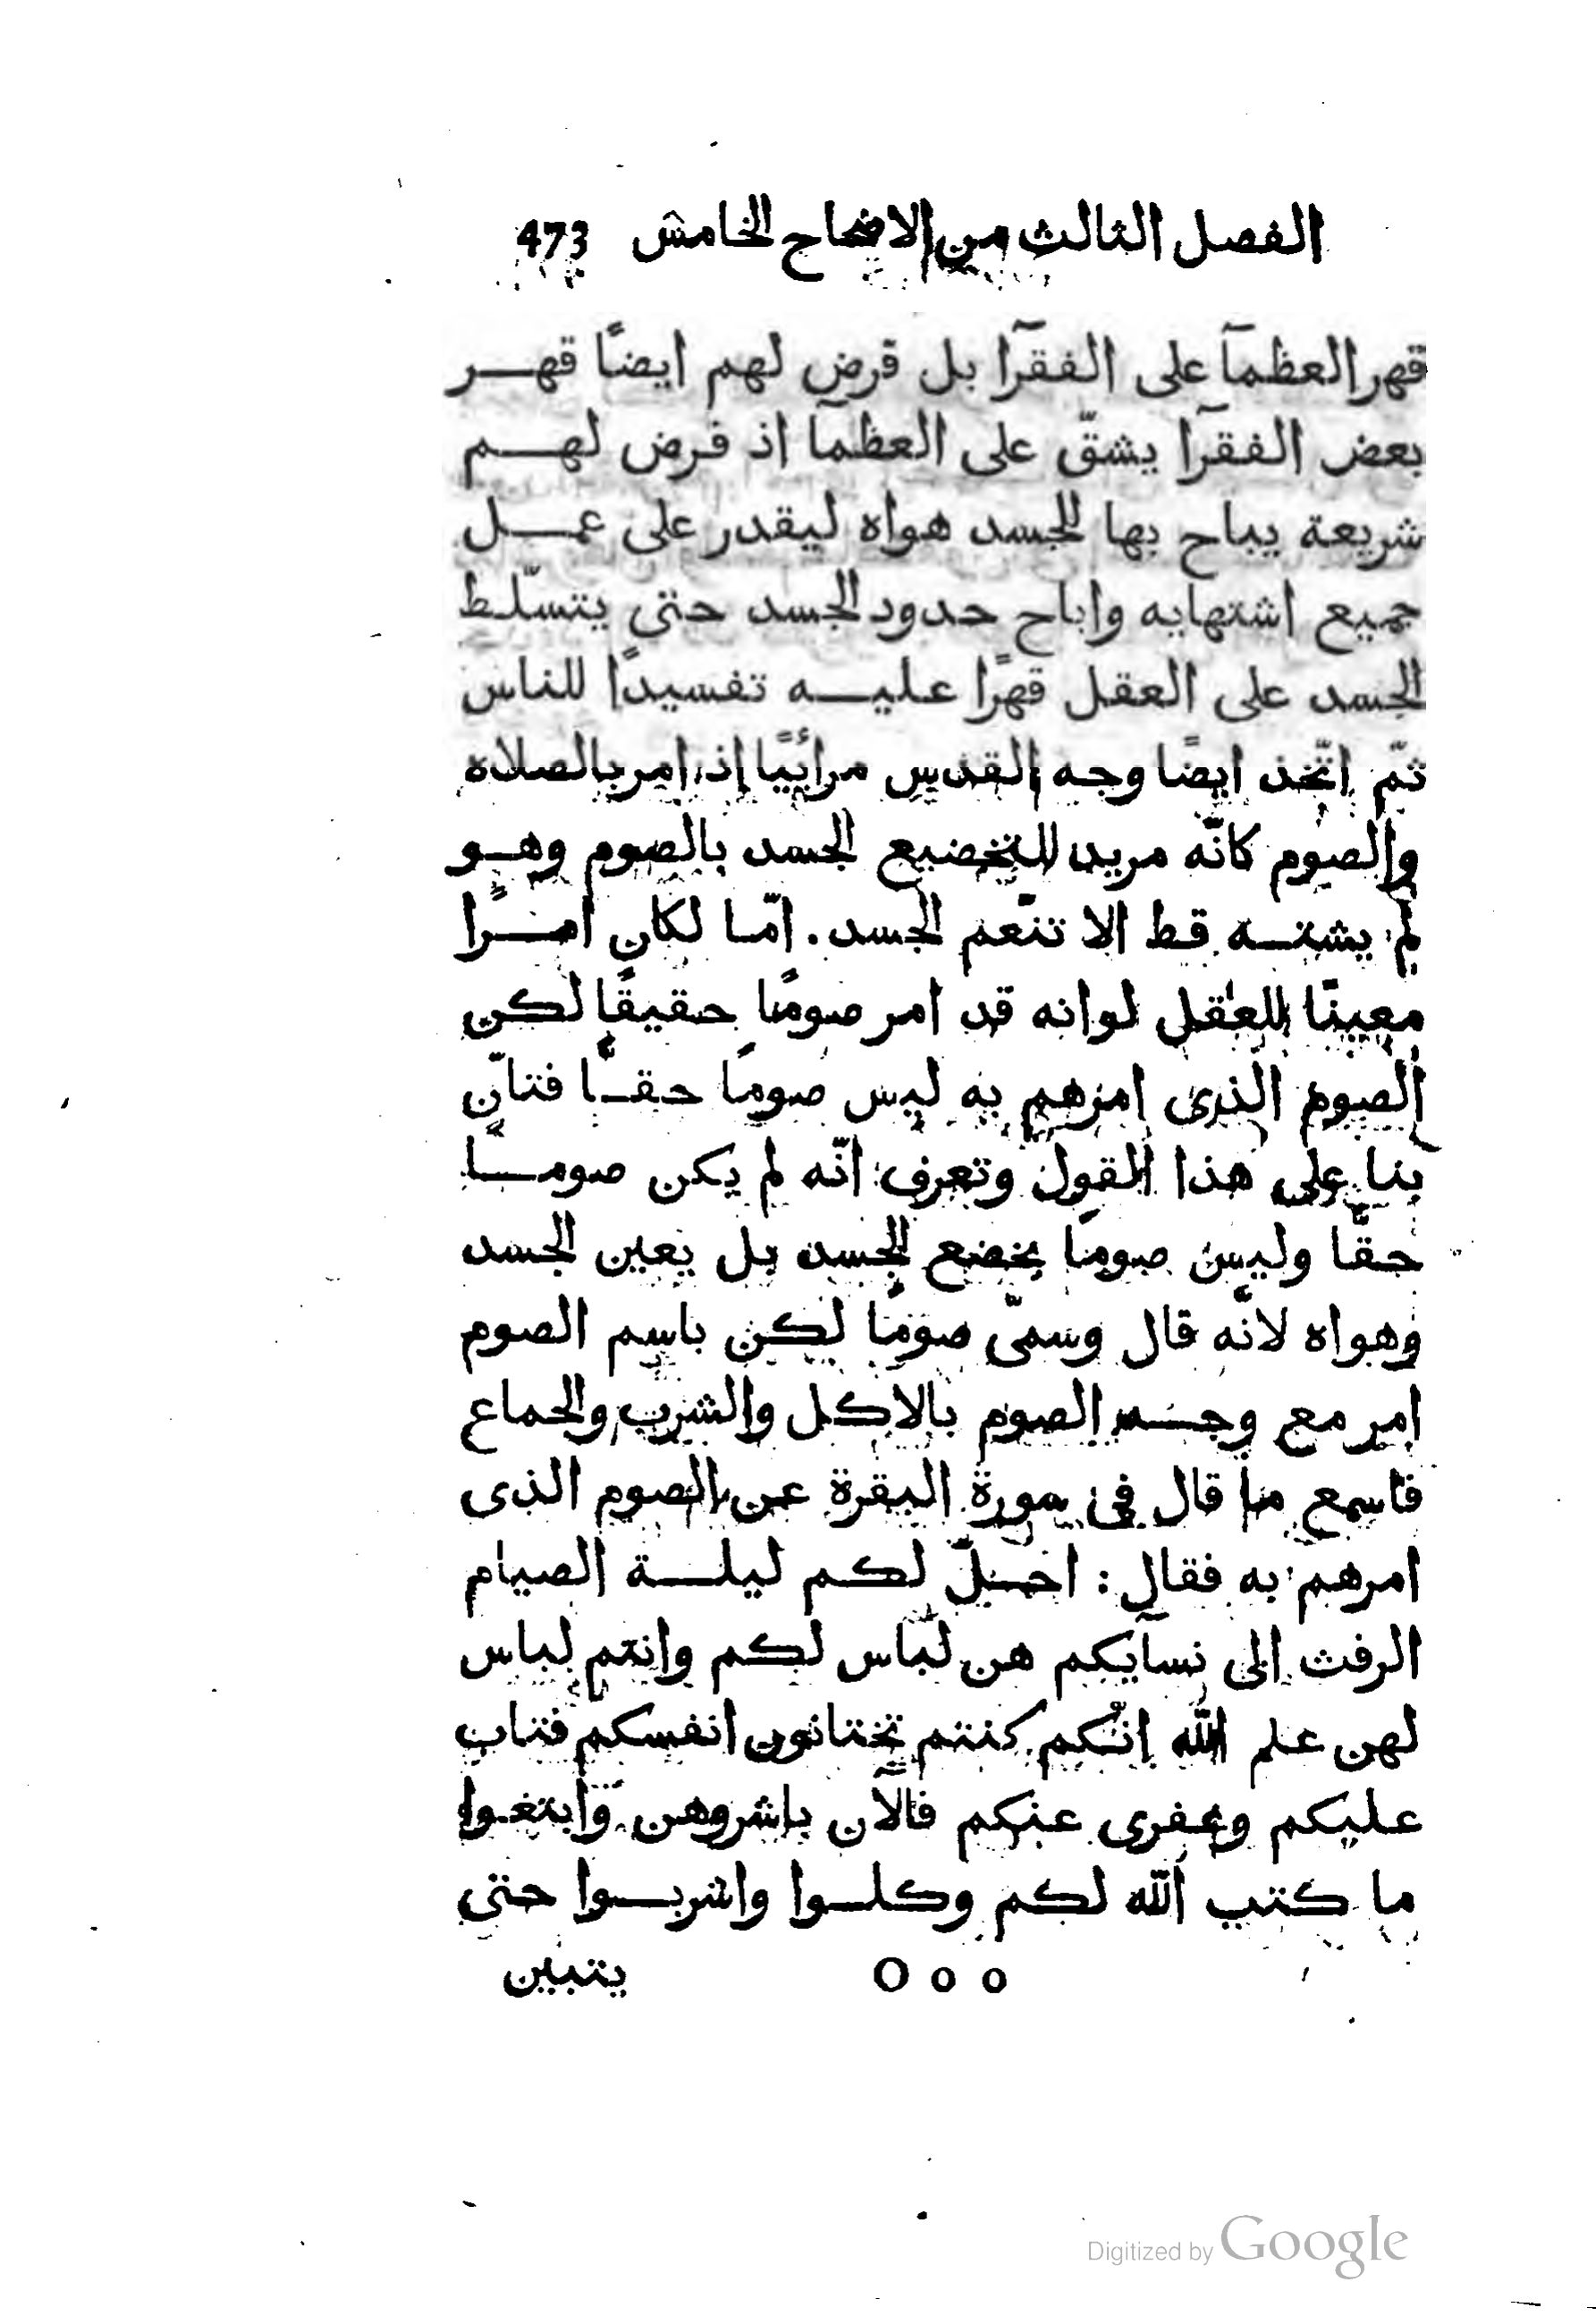 الفصل الثالث من الافحاح الخامس 473
قهر العظمآ على الفقرآ بل فرض لهم ايضًا قهر
بعض الفقرآ يشقّ على العظمآ اذ فرض لهم
شريعة يباح بها للجسد هواه ليقدر على عمل
جميع اشتهايه واباح حدود الجسد حتى يتسلّط
الجسد على العقل قهرًا عليه تفسيدًا للناس
ثمّ اتّخذ ايضًا وجه القدس مرائيًا إذ امر بالصلاه
والصوم كانّه مريد للتخضيع الجسد بالصوم وهو
لم يشته قط الا تنّعم الجسد. امّا لكان امرًا
معينًا للعقل لوانه قد امر صومًا حقيقًا لكن
الصوم الّذى امرهم به ليس صومًا حقًّا فتانّ
بنا على هذا القول وتعرف انّه لم يكن صومًا
حقًّا وليس صومًا يخضع الجسد بل يعين الجسد
وهواه لانّه قال وسمّى صومًا لكن باسم الصوم
امر مع وجه الصوم بالاكل والشرب والجماع
فاسمع ما قال فى سورة البقرة عن الصوم الذى
امرهم به فقال : احلّ لكم ليلة الصيام
الرفث الى نسآيكم هن لباس لكم وانتم لباس
لهن علم اللّه انّكم كنتم تختانون انفسكم فتاب
عليكم وعفرى عنكم فالآن باشروهن وابتغوا
ما كتب اللّه لكم وكلوا واشربوا حتى
O o o يتبين
Digitized by Google